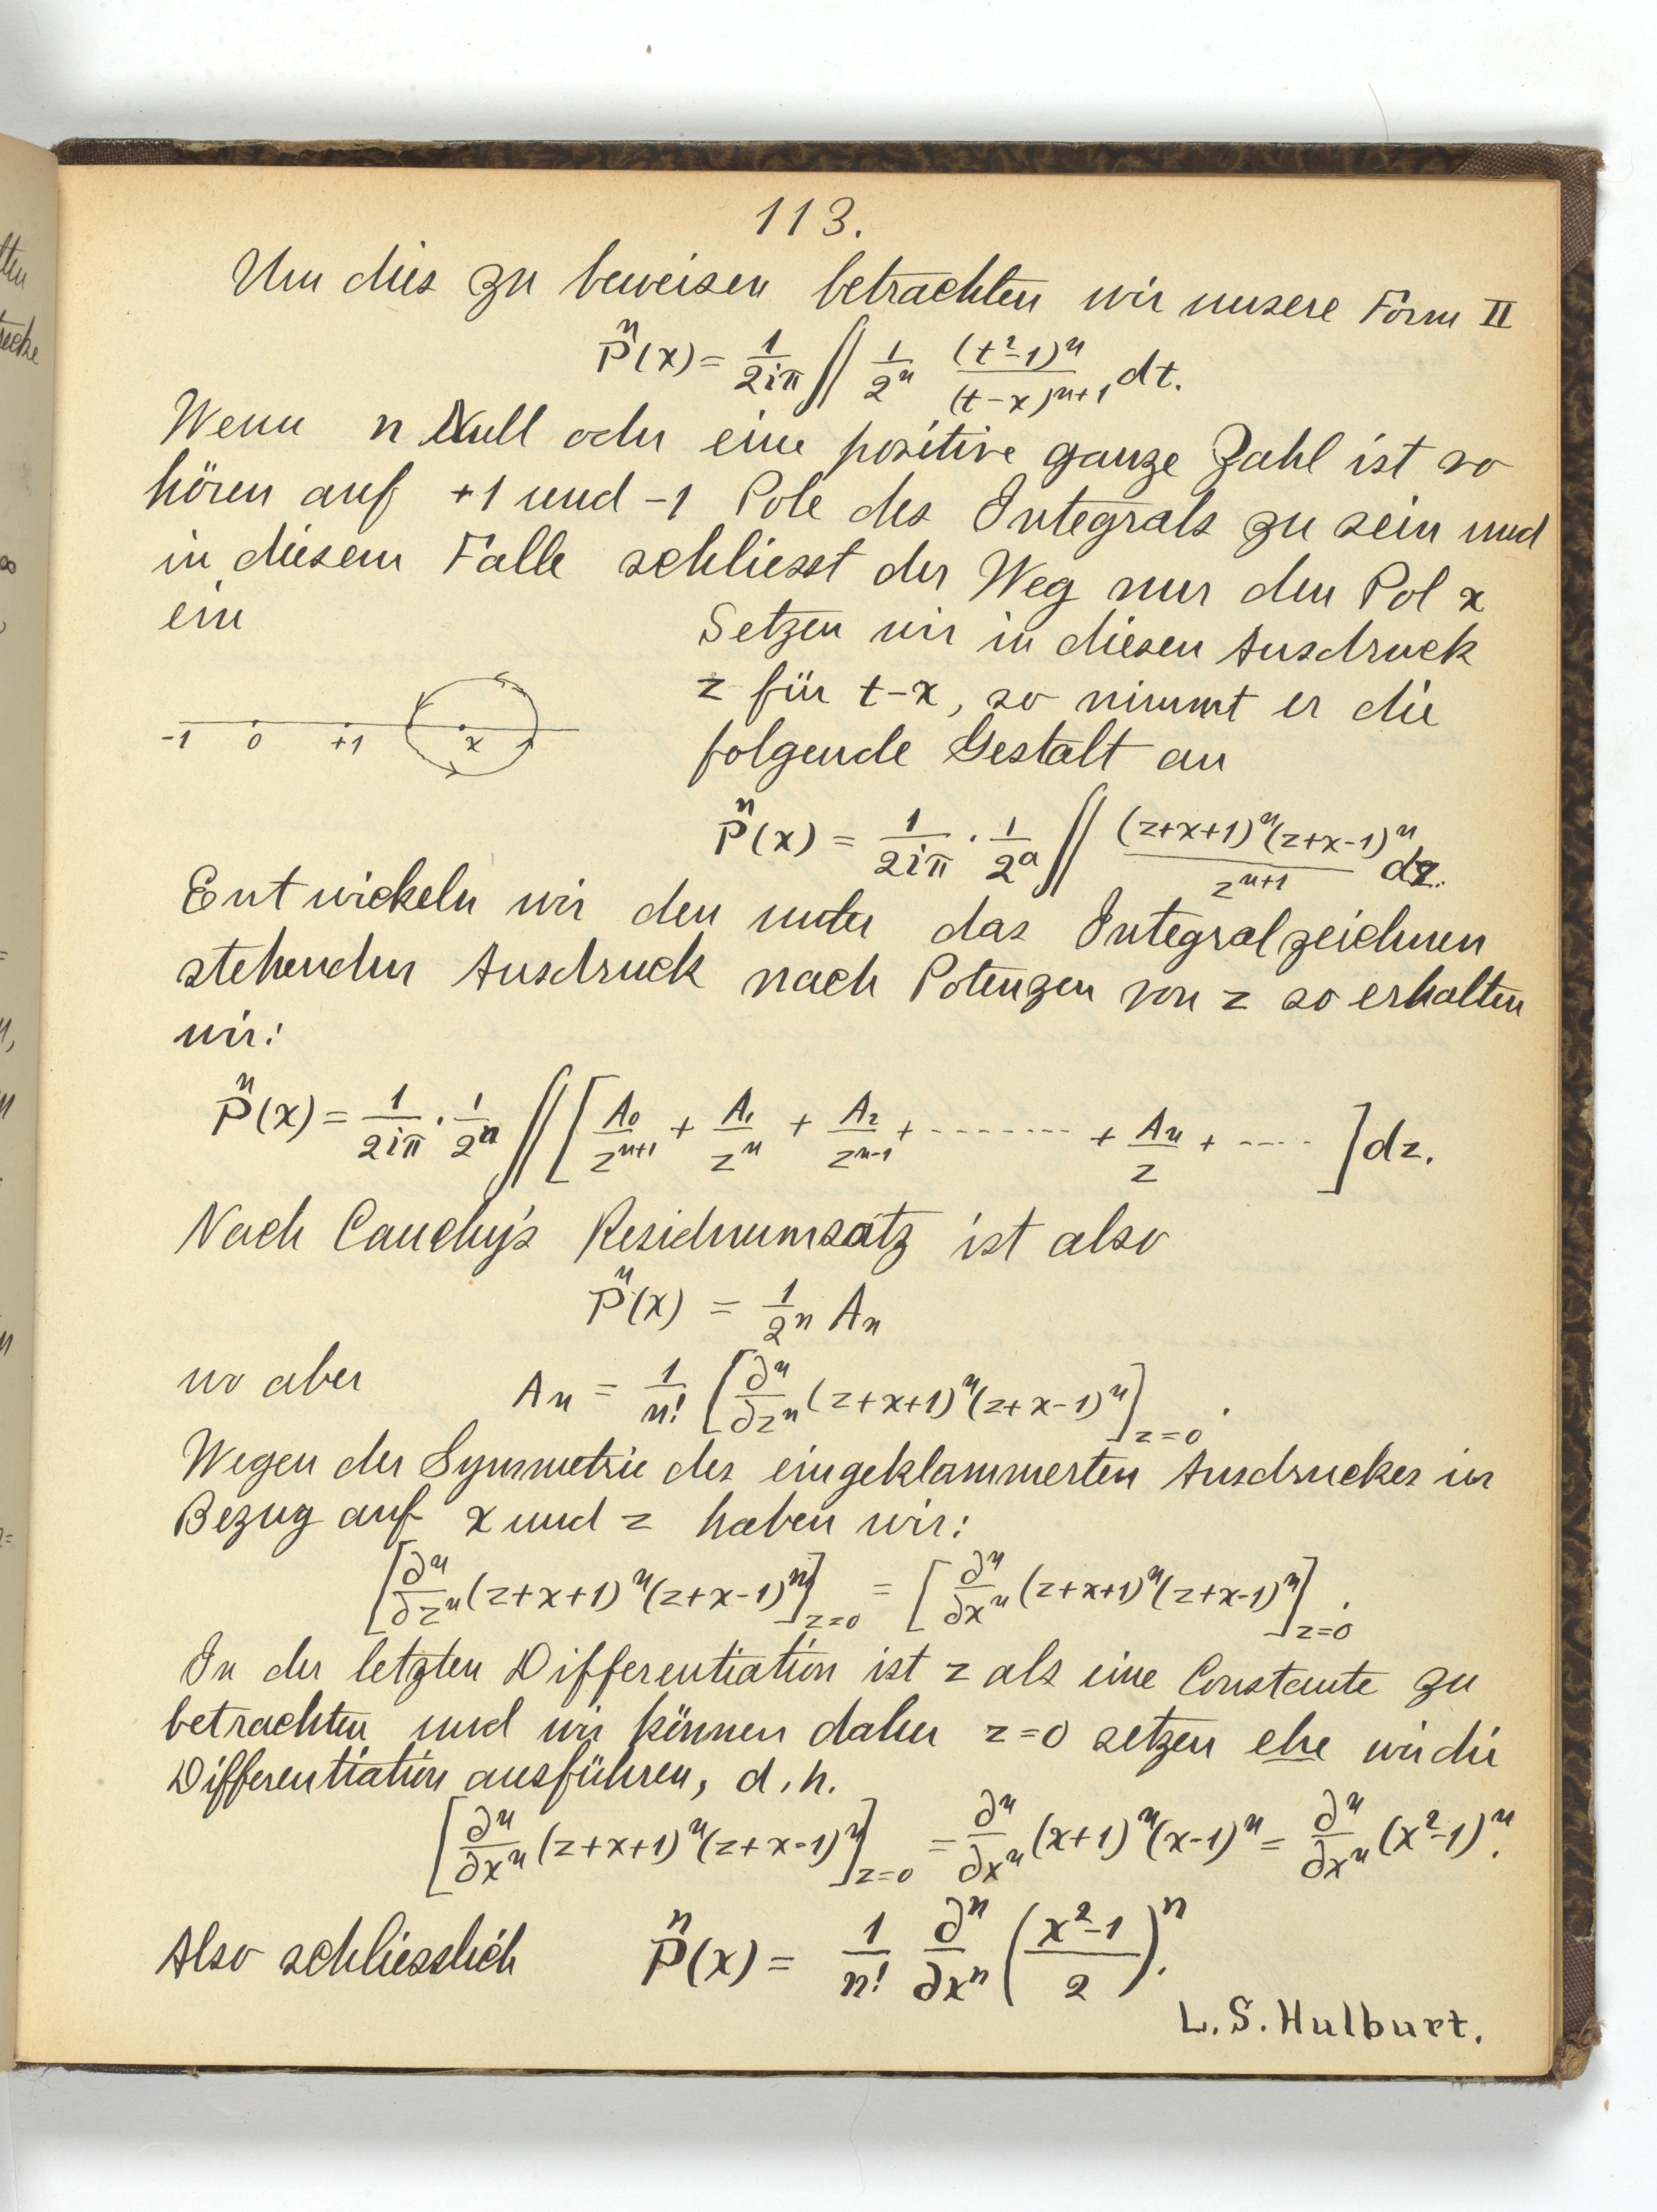 113.
Um dies zu beweisen betrachten wir unsere Form II
P^n(x) = 1/2iπ ∫∫ 1/2^n (t²-1)^n/(t-x)^{n+1} dt.
Wenn n Null oder eine positive ganze Zahl ist so
hören auf +1 und -1 Pole des Integrals zu sein und
in diesem Falle schliesst der Weg nur den Pol x
ein
Setzen wir in diesen Ausdruck
z für t-x, so nimmt er die
folgende Gestalt an
-1 0 +1 x
P^n(x) = 1/2iπ · 1/2^n ∫∫ (z+x+1)^n(z+x-1)^n/z^{n+1} dz.
Entwickeln wir den unter das Integralzeichnen
stehenden Ausdruck nach Potenzen von z so erhalten
wir:
P^n(x) = 1/2iπ · 1/2^n ∫∫ [A₀/z^{n+1} + A₁/z^n + A₂/z^{n-1} + -------- + A_n/z + ---- ] dz.
Nach Cauchy's Residuumsatz ist also
P^n(x) = 1/2^n A_n
wo aber A_n = 1/n! [∂^n/∂z^n (z+x+1)^n(z+x-1)^n]_{z=0}.
Wegen der Symmetrie des eingeklammerten Ausdruckes in
Bezug auf x und z haben wir:
[∂^n/∂z^n (z+x+1)^n(z+x-1)^n]_{z=0} = [∂^n/∂x^n (z+x+1)^n(z+x-1)^n]_{z=0}.
In der letzten Differentiation ist z als eine Constante zu
betrachten und wir können daher z=0 setzen ehe wir die
Differentiation ausführen, d.h.
[∂^n/∂x^n (z+x+1)^n(z+x-1)^n]_{z=0} = ∂^n/∂x^n (x+1)^n(x-1)^n = ∂^n/∂x^n (x²-1)^n.
Also schliesslich P^n(x) = 1/n! ∂^n/∂x^n (x²-1/2)^n.
L.S. Hulburt.